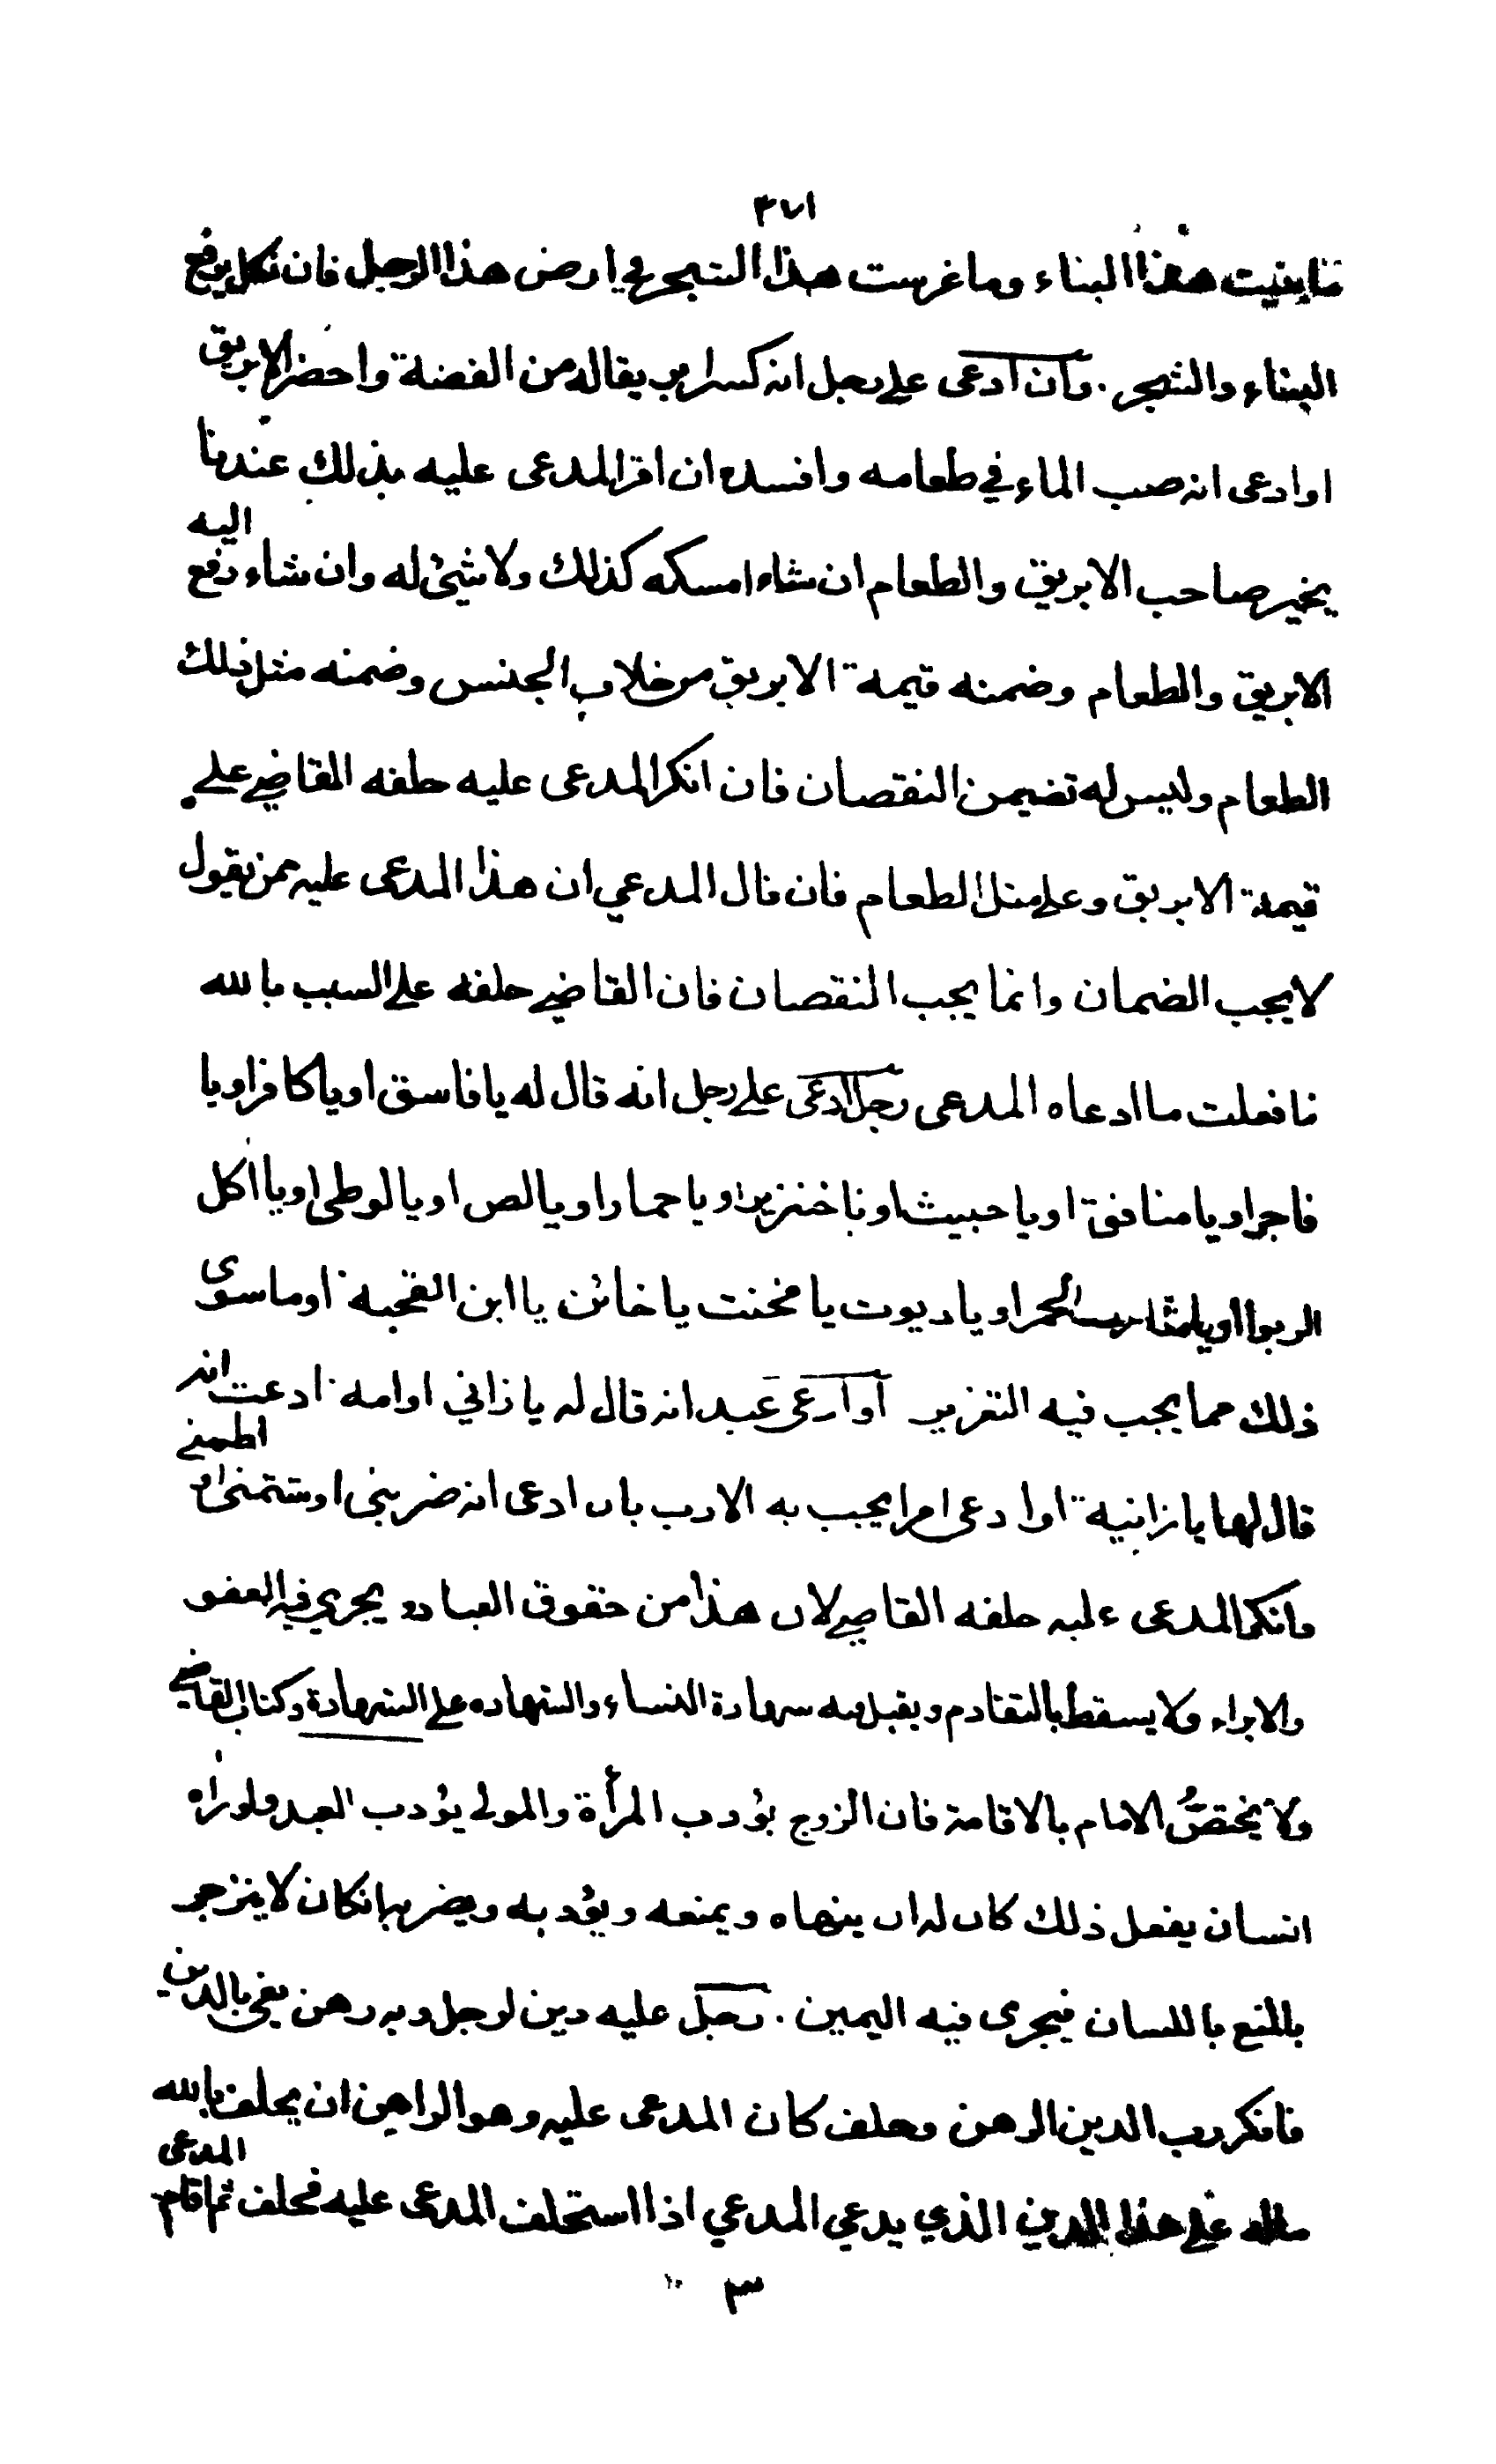 ٣٧١
ما بنيت هذا البناء وما غرست هذا الشجر في ارض هذا الرجل فان نكل يرفع
البناء والشجر . وان ادعى على رجل انه كسر ابريقا له من الفضة واحضر الابريق
او ادعى انه صب الماء في طعامه وافسده ان اقر المدعى عليه بذلك عندنا
يخير صاحب الابريق والطعام ان شاء امسكه كذلك ولا شئ له وان شاء دفع اليه
الابريق والطعام وضمنه قيمة الابريق من خلاف الجنس وضمنه مثل ذلك
الطعام وليس له تضمين النقصان فان انكر المدعى عليه حلفه القاضي على
قيمة الابريق وعلى مثل الطعام فان قال المدعي ان هذا المدعى عليه ممن يقول
لا يجب الضمان وانما يجب النقصان فان القاضي حلفه على السبب بالله
ما فعلت ما ادعاه المدعى رجل ادعى على رجل انه قال له يا فاسق او يا كافر او يا
فاجر او يا منافق او يا خبيث او يا خنزير او يا حمار او يا لص او يا لوطي او يا اكل
الربوا او يا شارب الخمر او يا ديوث يا مخنث يا خائن يا ابن القحبة او ما سوى
ذلك مما يجب فيه التعزير او ادعى عبد انه قال له يا زاني او امة ادعت انه
قال لها يا زانية او ادعى امرا يجب به الادب بان ادعى انه ضربني او شتمني او لطمني
وانكر المدعى عليه حلفه القاضي لان هذا من حقوق العباد و يجري فيه العفو
والابراء ولا يسقط بالتقادم ويقبل فيه شهادة النساء والشهادة على الشهادة وكتاب القاضي
ولا يختصُّ الامام بالاقامة فان الزوج يؤدب المرأة والمولى يؤدب العبد ولو راه
انسان يفعل ذلك كان له ان ينهاه ويمنعه ويؤدبه ويضربه ان كان لا ينزجر
بالمنع باللسان فيجرى فيه اليمين . رجل عليه دين لرجل وبه رهن يفي بالدين
فانكر رب الدين الرهن وحلف كان المدعى عليه وهو الراهن ان يحلف بالله
ماله على هذا الدين الذي يدعي المدعي اذا استحلف المدعى عليه فحلف ثم اقام المدعى
٣